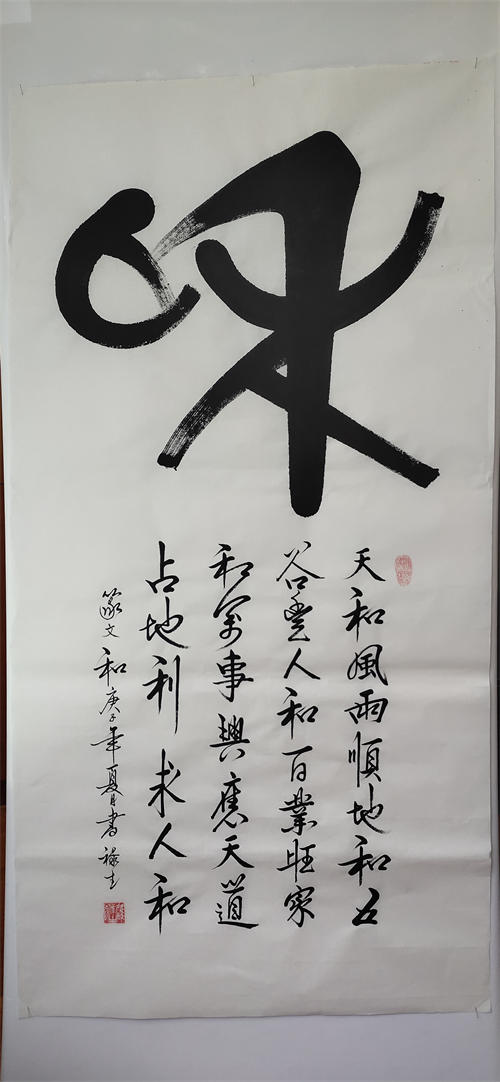 和
天和風雨順地和五
谷豐人和百業旺家
和萬事興應天道
占地利求人和
篆文和庚子年夏月書